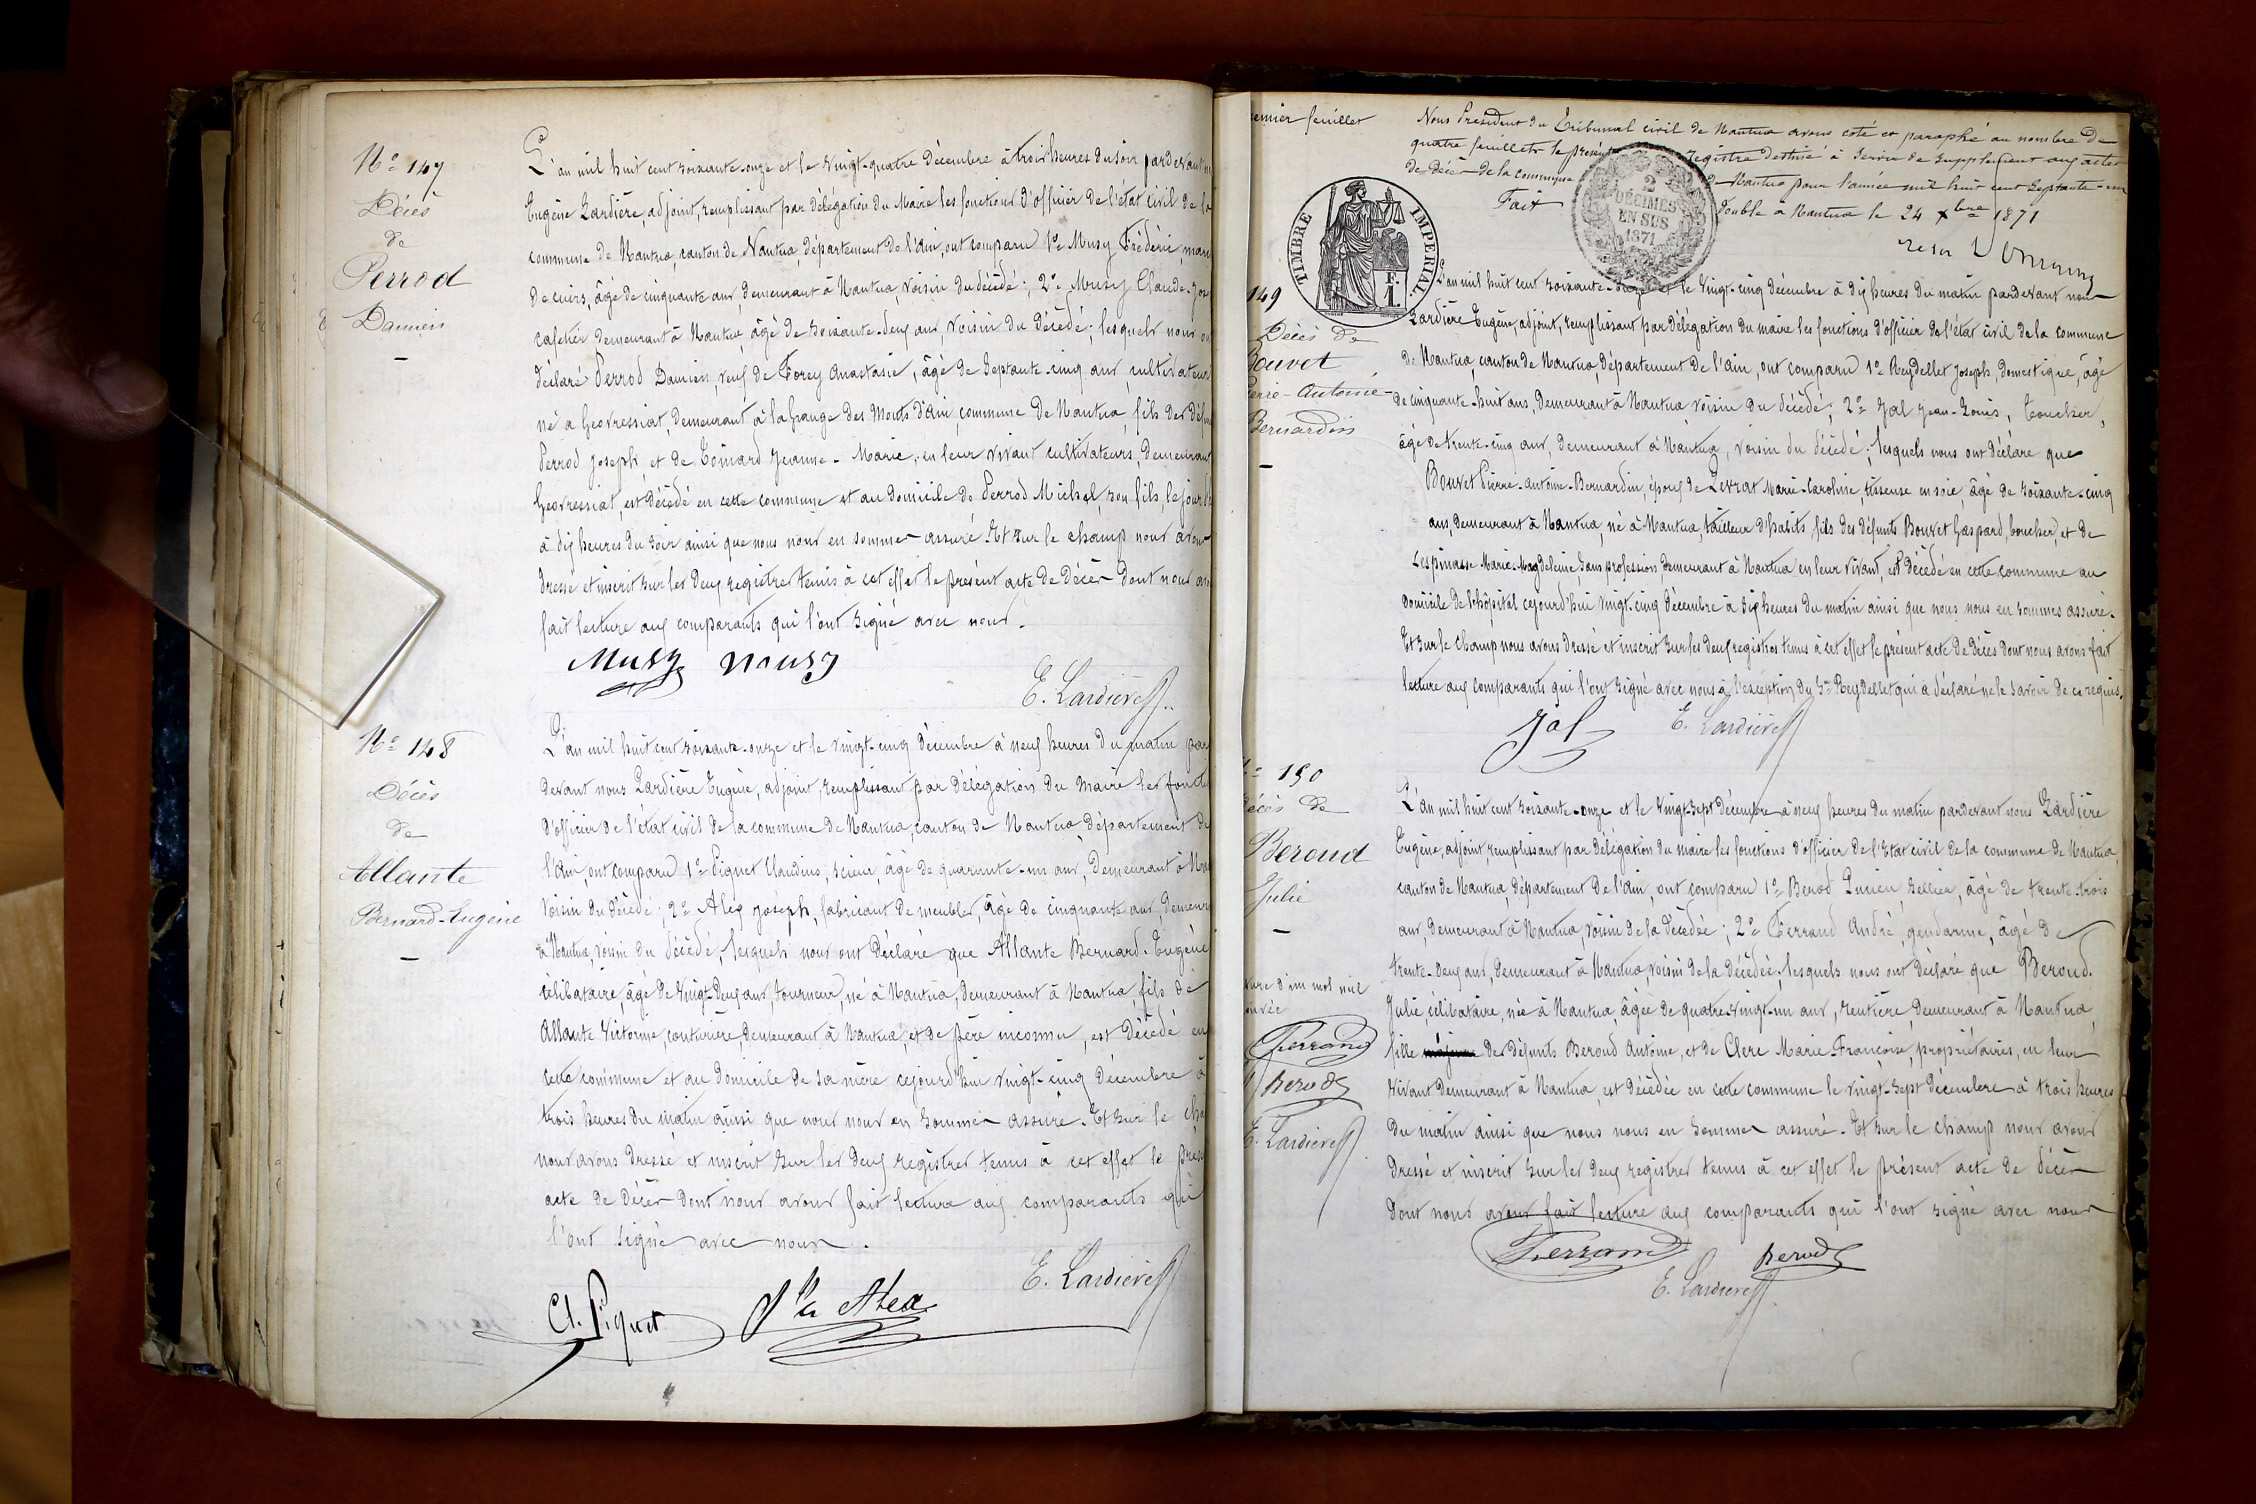 Nº 147
Décès
de
Perrod
Damien
L'an mil huit cent soixante-onze et le vingt-quatre décembre à trois heures du soir pardevant
Eugène Lardière, adjoint, remplissant par délégation du Maire les fonctions d'officier de l'état civil de la
commune de Nantua, canton de Nantua, département de l'Ain, ont comparu 1º Musy Frédéric
de cuirs, âgé de cinquante ans, demeurant à Nantua, voisin du décédé; 2º Musy Claude
cafetier demeurant à Nantua, âgé de soixante-deux ans, voisin du décédé; lesquels nous
déclaré Perrod Damien, veuf de Forey Anastasie, âgé de septante-cinq ans, cultivateur
né à Geovressiat, demeurant à la Grange des Monts d'Ain, commune de Nantua, fils des
Perrod Joseph et de Toinard Jeanne-Marie, en leur vivant cultivateurs, demeurant
Geovressiat, est décédé en cette commune et au domicile de Perrod Michel, son fils, le jour
à dix heures du soir ainsi que nous nous en sommes assuré. Et sur le champ nous avons
dressé et inscrit sur les deux registres tenus à cet effet le présent acte de décès dont nous
fait lecture aux comparants qui l'ont signé avec nous.
Musy Musy
E. Lardière
Nº 148
Décès
de
Allante
Bernard-Eugène
L'an mil huit cent soixante-onze et le vingt-cinq décembre à neuf heures du matin par
devant nous Lardière Eugène, adjoint, remplissant par délégation du Maire les
d'officier de l'état civil de la commune de Nantua, canton de Nantua, département de
l'Ain, ont comparu 1º Piquet Claudius, scieur, âgé de quarante-un ans, demeurant à
voisin du décédé; 2º Alex Joseph, fabricant de meubles, âgé de cinquante ans,
à Nantua, voisin du décédé, lesquels nous ont déclaré que Allante Bernard-Eugène
célibataire, âgé de vingt-deux ans, tourneur, né à Nantua, demeurant à Nantua, fils de
Allante Victorine, couturière, demeurant à Nantua, et de père inconnu, est décédé en
cette commune et au domicile de sa mère cejourd'hui vingt-cinq décembre à
trois heures du matin ainsi que nous nous en sommes assuré. Et sur le
nous avons dressé et inscrit sur les deux registres tenus à cet effet le
acte de décès dont nous avons fait lecture aux comparants qui
l'ont signé avec nous.
E. Lardière
Cl. Piquet Alex
emier feuillet
Nous Président du Tribunal civil de Nantua avons coté et paraphé au nombre de
quatre feuillets le présent registre destiné à servir de supplément aux actes
de décès de la commune de Nantua pour l'année mil huit cent septante-un
Fait double à Nantua le 24 Xbre 1871
TIMBRE IMPERIAL
F.
1.
2
DÉCIMES
EN SUS
1871
149
Décès de
Bouvet
ierre-Antoine-
Bernardin
L'an mil huit cent soixante-onze et le vingt-cinq décembre à dix heures du matin pardevant nous
Lardière Eugène, adjoint, remplissant par délégation du maire les fonctions d'officier de l'état civil de la commune
de Nantua, canton de Nantua, département de l'Ain, ont comparu 1º Reydellet Joseph, domestique, âgé
de cinquante-huit ans, demeurant à Nantua voisin du décédé; 2º Jal Jean-Louis, boucher,
âgé de trente-cinq ans, demeurant à Nantua, voisin du décédé; lesquels nous ont déclaré que
Bouvet Pierre-Antoine-Bernardin, époux de Livrat Marie-Caroline, tisseuse en soie, âgé de soixante-cinq
ans, demeurant à Nantua, né à Nantua, tailleur d'habits, fils des défunts Bouvet Gaspard, boucher, et de
Lespinasse Marie-Magdeleine, sans profession, demeurant à Nantua, en leur vivant, est décédé en cette commune au
domicile de l'hôpital cejourd'hui vingt-cinq décembre à six heures du matin ainsi que nous nous en sommes assuré.
Et sur le champ nous avons dressé et inscrit sur les deux registres tenus à cet effet le présent acte de décès dont nous avons fait
lecture aux comparants qui l'ont signé avec nous à l'exception du Sr Reydellet qui a déclaré ne le savoir de ce requis.
Jal E. Lardière
º 150
écès de
Beroud
Julie
ure d'un mot nul
Ferrand
Berod
E. Lardière
L'an mil huit cent soixante-onze et le vingt-sept décembre à neuf heures du matin pardevant nous Lardière
Eugène, adjoint remplissant par délégation du maire les fonctions d'officier de l'Etat civil de la commune de Nantua,
canton de Nantua, département de l'Ain, ont comparu 1º Berod Lucien, sellier, âgé de trente-trois
ans, demeurant à Nantua, voisin de la décédée; 2º Ferrand André, gendarme, âgé de
trente-deux ans, demeurant à Nantua, voisin de la décédée; lesquels nous ont déclaré que Beroud
Julie, célibataire, née à Nantua, âgée de quatre-vingt-un ans, rentière, demeurant à Nantua,
fille des défunts Beroud Antoine, et de Clerc Marie-Françoise, propriétaires, en leur
vivant demeurant à Nantua, est décédée en cette commune le vingt-sept décembre à trois heures
du matin ainsi que nous nous en sommes assuré. Et sur le champ nous avons
dressé et inscrit sur les deux registres tenus à cet effet le présent acte de décès
dont nous avons fait lecture aux comparants qui l'ont signé avec nous
Ferrand Berod
E. Lardière